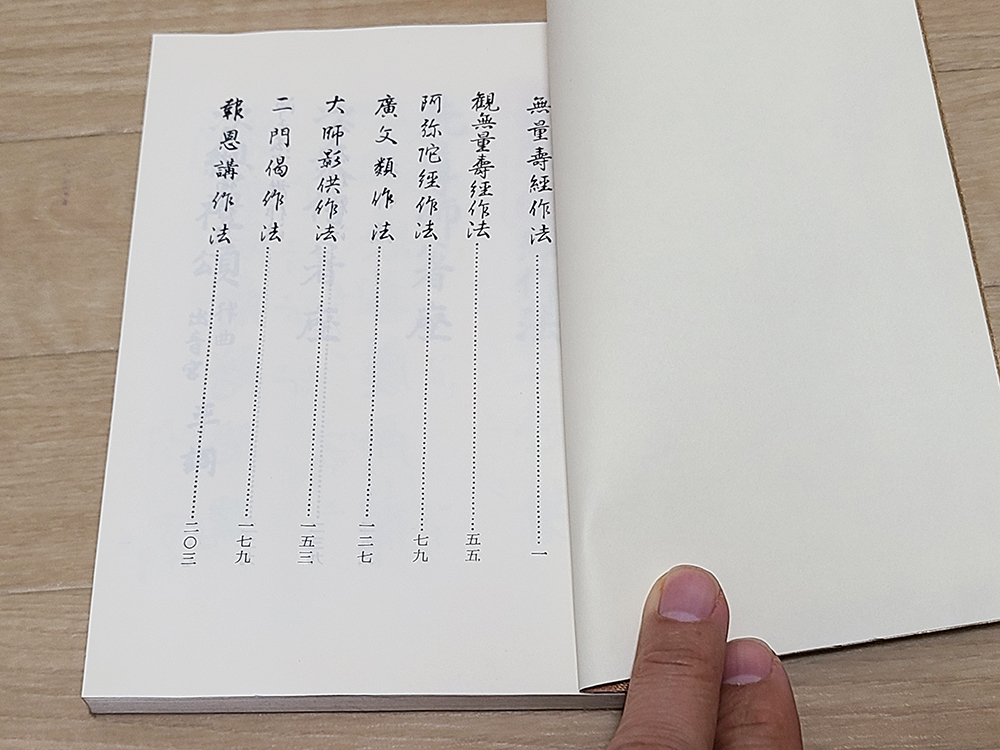 無量壽經作法……一
観無量壽經作法……五五
阿弥陀經作法……七九
廣文類作法……一二七
大師影供作法……一五三
二門偈作法……一七九
報恩講作法……二〇三